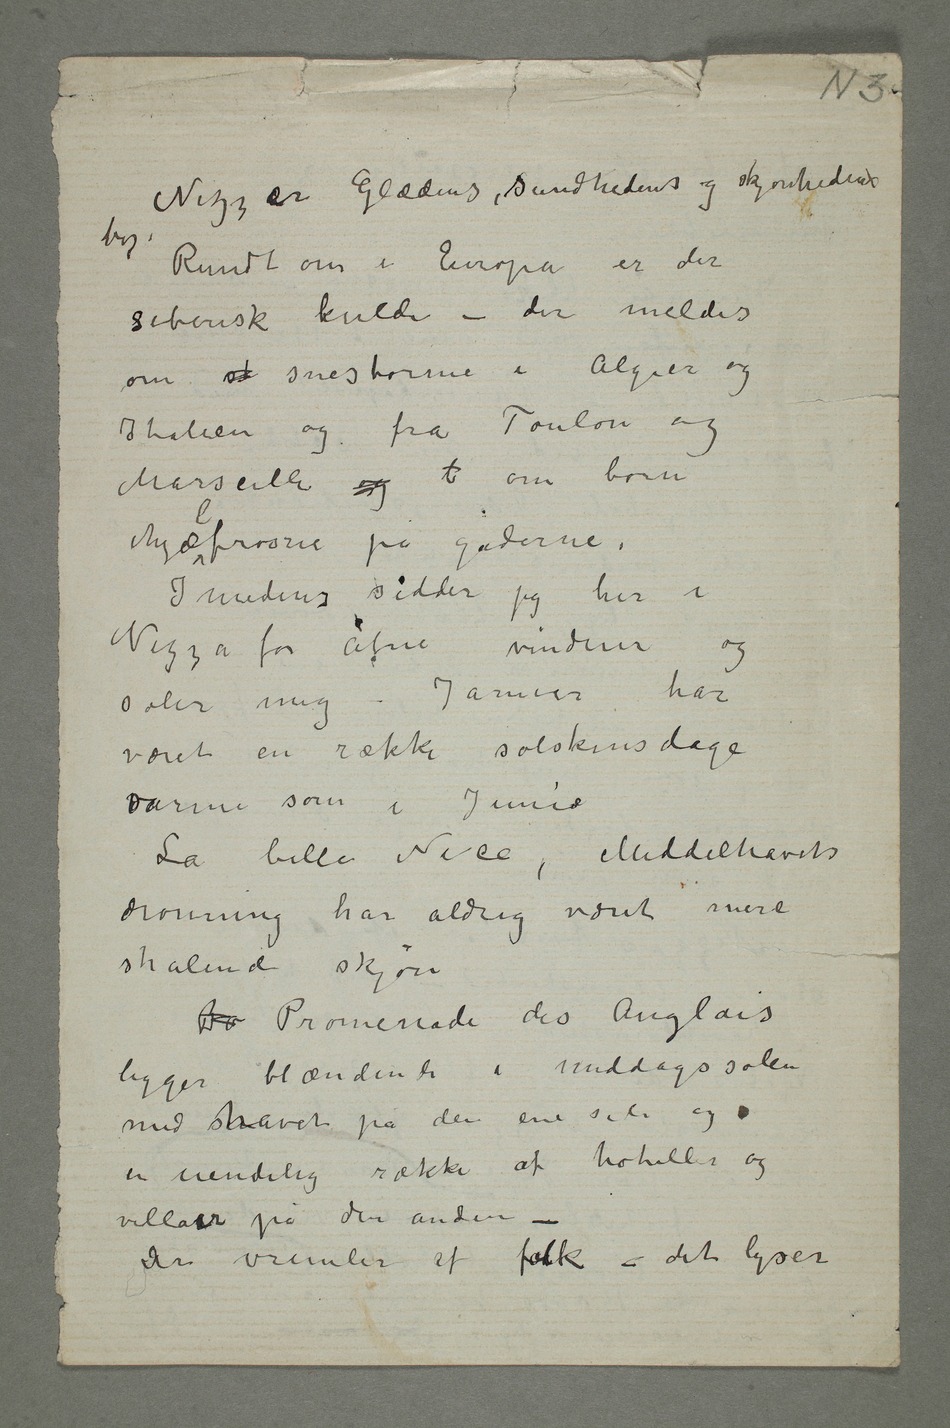 N 3
Nizz er Glædens, sundhedens og skjønhedens
by.
Rundt om i Europa er der
siberisk kulde – der meldes
om st snestorme i Algier og
Italien og fra Toulon og
Marseille og t om børn
ihjælfrosne på gaderne.
Imedens sidder jeg her i
Nizza for åfne vinduer og
soler mig – Januar har
været en række solskinsdage
varme som i Junie
La belle Nice, Middelhavets
dronning har aldrig været mere
stralende skjøn
Promenade des Anglais
ligger blændende i middagssolen
med havet på den ene side og
en uendelig række af hoteller og
villaer på den anden –
Der vrimler af folk – det lyser